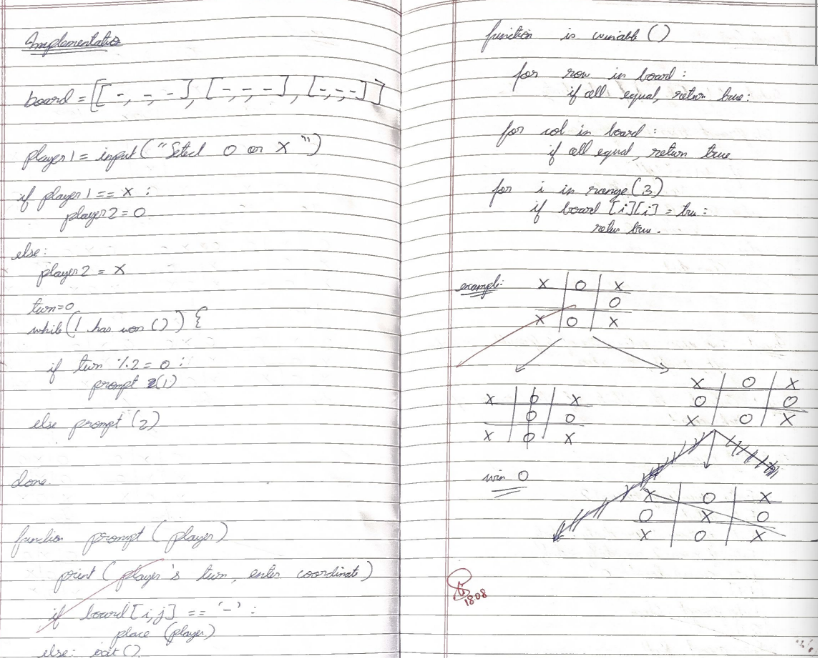 Implementation
board = [[-, -, -], [-, -, -], [-, -, -]]
player1 = input("Select O or X")
if player1 == X :
player2 = O
else:
player2 = X
turn=0
while(! has won ()) {
if turn %2 = 0 :
prompt (1)
else prompt (2)
done
function prompt (player)
print (player's turn, enter coordinate)
if board[i,j] == '-' :
place (player)
else: exit()
function is winnable ()
for row in board :
if all equal, return true:
for col in board :
if all equal, return true
for i in range(3)
if board [i][i] = tru:
retur tru.
example: X O X
O
X O X
X O X
O O
X O X
win O
X O X
O O
X O X
X O X
O X O
X O X
1808